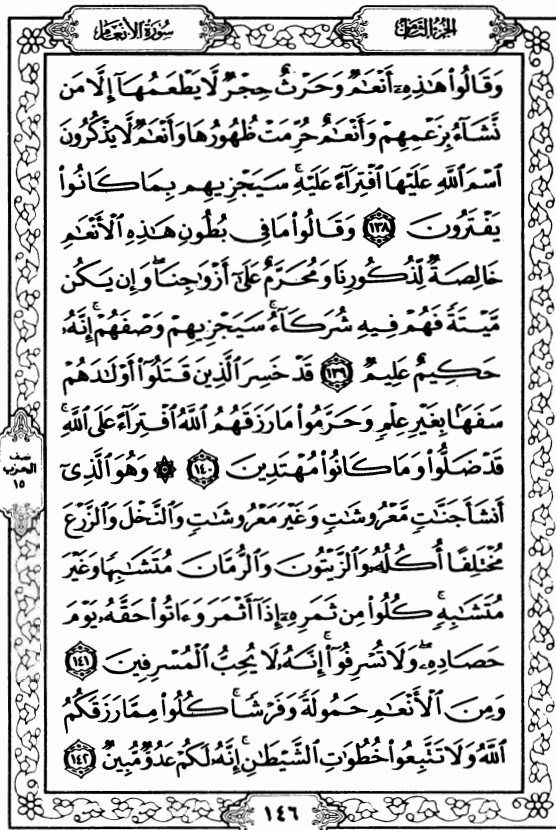 سُورَةُ الأَنْعَام
الجُزْءُ الثَّامِنُ
وَقَالُواْ هَٰذِهِۦٓ أَنْعَٰمٌ وَحَرْثٌ حِجْرٌ لَّا يَطْعَمُهَآ إِلَّا مَن
نَّشَآءُ بِزَعْمِهِمْ وَأَنْعَٰمٌ حُرِّمَتْ ظُهُورُهَا وَأَنْعَٰمٌ لَّا يَذْكُرُونَ
ٱسْمَ ٱللَّهِ عَلَيْهَا ٱفْتِرَآءً عَلَيْهِ ۚ سَيَجْزِيهِم بِمَا كَانُواْ
يَفْتَرُونَ ١٣٨ وَقَالُواْ مَا فِى بُطُونِ هَٰذِهِ ٱلْأَنْعَٰمِ
خَالِصَةٌ لِّذُكُورِنَا وَمُحَرَّمٌ عَلَىٰٓ أَزْوَٰجِنَا ۖ وَإِن يَكُن
مَّيْتَةً فَهُمْ فِيهِ شُرَكَآءُ ۚ سَيَجْزِيهِمْ وَصْفَهُمْ ۚ إِنَّهُۥ
حَكِيمٌ عَلِيمٌ ١٣٩ قَدْ خَسِرَ ٱلَّذِينَ قَتَلُوٓاْ أَوْلَٰدَهُمْ
سَفَهًۢا بِغَيْرِ عِلْمٍ وَحَرَّمُواْ مَا رَزَقَهُمُ ٱللَّهُ ٱفْتِرَآءً عَلَى ٱللَّهِ ۚ
قَدْ ضَلُّواْ وَمَا كَانُواْ مُهْتَدِينَ ١٤٠ ۞ وَهُوَ ٱلَّذِىٓ
أَنشَأَ جَنَّٰتٍ مَّعْرُوشَٰتٍ وَغَيْرَ مَعْرُوشَٰتٍ وَٱلنَّخْلَ وَٱلزَّرْعَ
مُخْتَلِفًا أُكُلُهُۥ وَٱلزَّيْتُونَ وَٱلرُّمَّانَ مُتَشَٰبِهًا وَغَيْرَ
مُتَشَٰبِهٍ ۚ كُلُواْ مِن ثَمَرِهِۦٓ إِذَآ أَثْمَرَ وَءَاتُواْ حَقَّهُۥ يَوْمَ
حَصَادِهِۦ ۖ وَلَا تُسْرِفُوٓاْ ۚ إِنَّهُۥ لَا يُحِبُّ ٱلْمُسْرِفِينَ ١٤١
وَمِنَ ٱلْأَنْعَٰمِ حَمُولَةً وَفَرْشًا ۚ كُلُواْ مِمَّا رَزَقَكُمُ
ٱللَّهُ وَلَا تَتَّبِعُواْ خُطُوَٰتِ ٱلشَّيْطَٰنِ ۚ إِنَّهُۥ لَكُمْ عَدُوٌّ مُّبِينٌ ١٤٢
نصف
الحزب
١٥
١٤٦